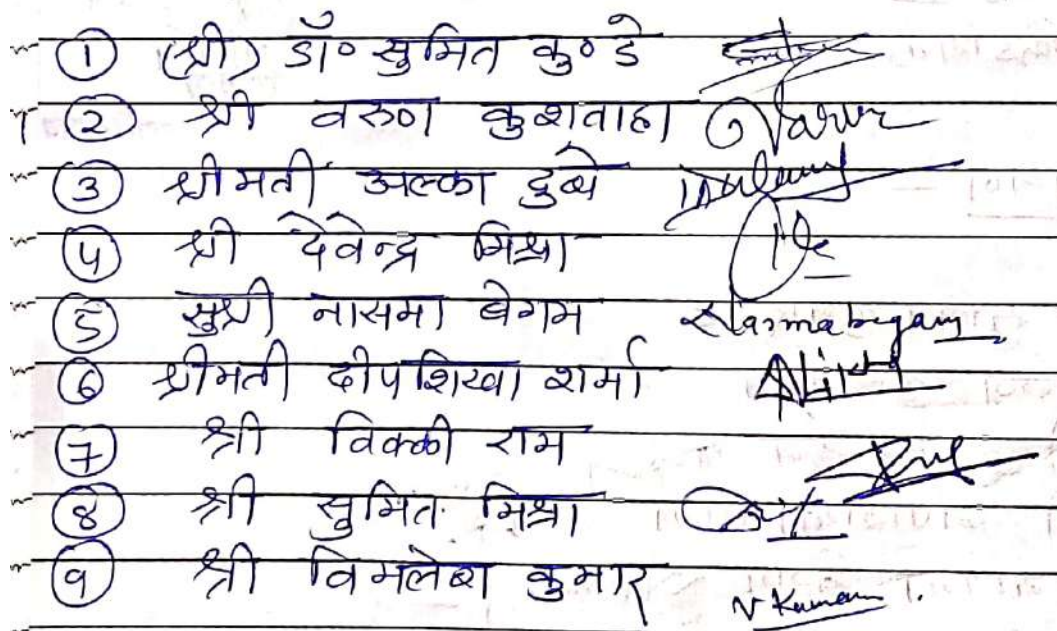 ① (श्री) डॉ० सुमित कु० डे
② श्री वरुण कुशवाहा Varun
③ श्रीमती अल्का दुबे
④ श्री देवेन्द्र मिश्रा
⑤ सुश्री नासमा बेगम Nasmabegam
⑥ श्रीमती दीपशिखा शर्मा
⑦ श्री विक्की राम
⑧ श्री सुमित मिश्रा
⑨ श्री विमलेश कुमार V Kumar